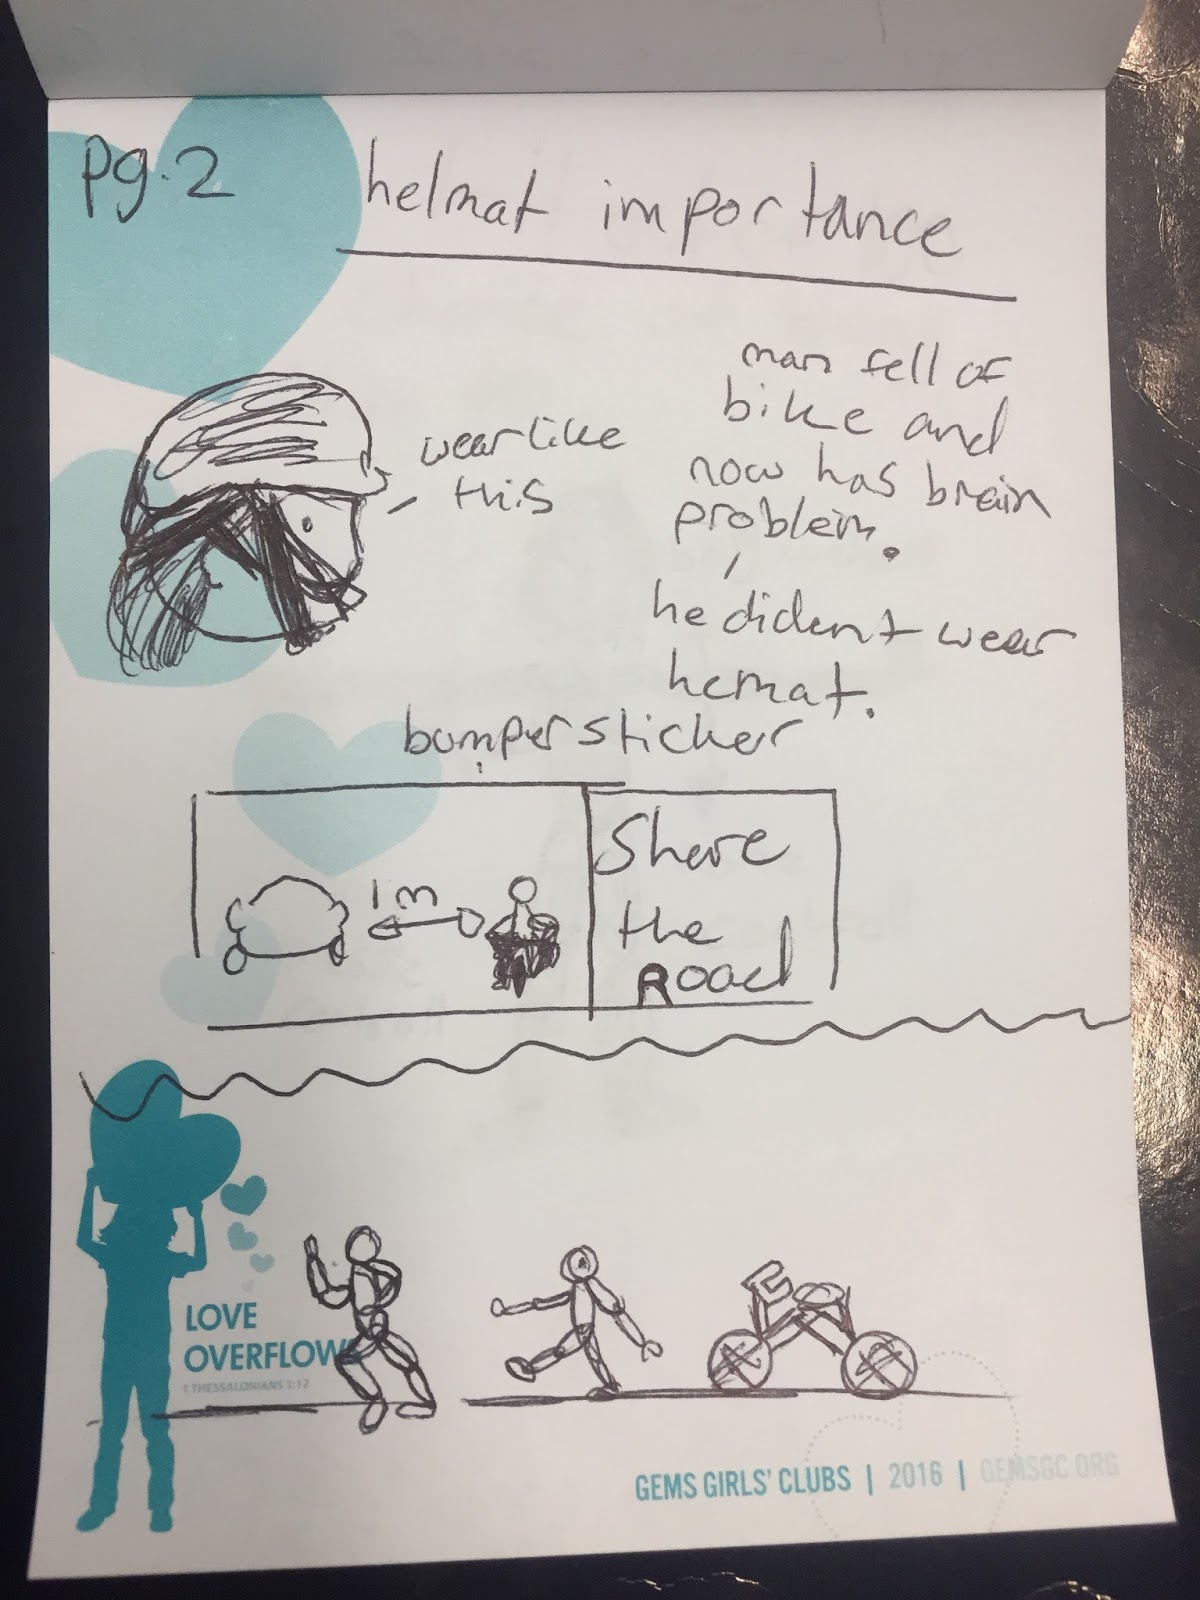 pg.2
helmat importance
wear like
this
man fell of
bike and
now has brain
problem.
he dident wear
hemat.
bumper sticker
1m
Share
the
Road
LOVE
OVERFLOWS
1 THESSALONIANS 3:12
GEMS GIRLS' CLUBS | 2016 | GEMSGC.ORG